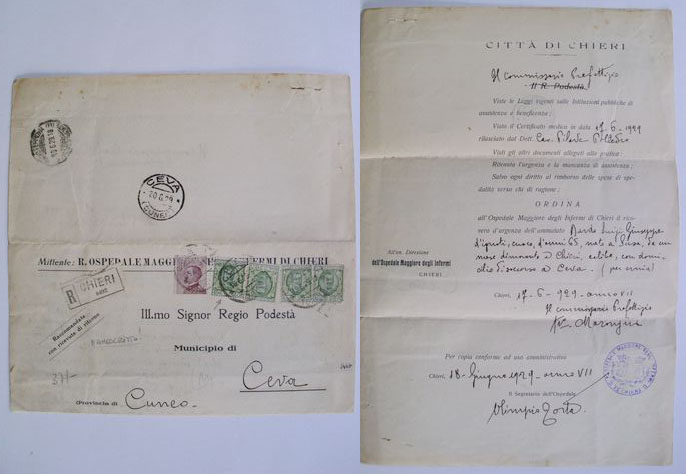 CEVA
20.6.29
(CUNEO)
Mittente: R. OSPEDALE MAGGIORE INFERMI DI CHIERI
R CHIERI
Raccomandata
con ricevuta di ritorno
Ill.mo Signor Regio Podestà
Municipio di
Ceva
(Provincia di Cuneo
CITTÀ DI CHIERI
Il Commissario Prefettizio
Il R. Podestà
Viste le Leggi vigenti sulle Istituzioni pubbliche di
assistenza e beneficenza;
Visto il Certificato medico in data 17-6-1929
rilasciato dal Dott. Cav.
Visti gli altri documenti allegati alla pratica;
Ritenuta l'urgenza e la mancanza di assistenza;
Salvo ogni diritto al rimborso delle spese di spe-
dalità verso chi di ragione;
ORDINA
all'Ospedale Maggiore degli Infermi di Chieri il rico-
vero d'urgenza dell'ammalato Bardo Luigi Giuseppe
d'ignoti, cuoco, d'anni 65, nato a Susa, da un
mese dimorante a Chieri, celibe, con domi-
cilio di soccorso a Ceva. (per ernia)
All'On. Direzione
dell'Ospedale Maggiore degli Infermi
CHIERI
Chieri, 17-6-929-anno VII
Il Commissario Prefettizio
Per copia conforme ad uso amministrativo
Chieri, 18-Giugno 1929-anno VII
Il Segretario dell'Ospedale
Olimpio Torta